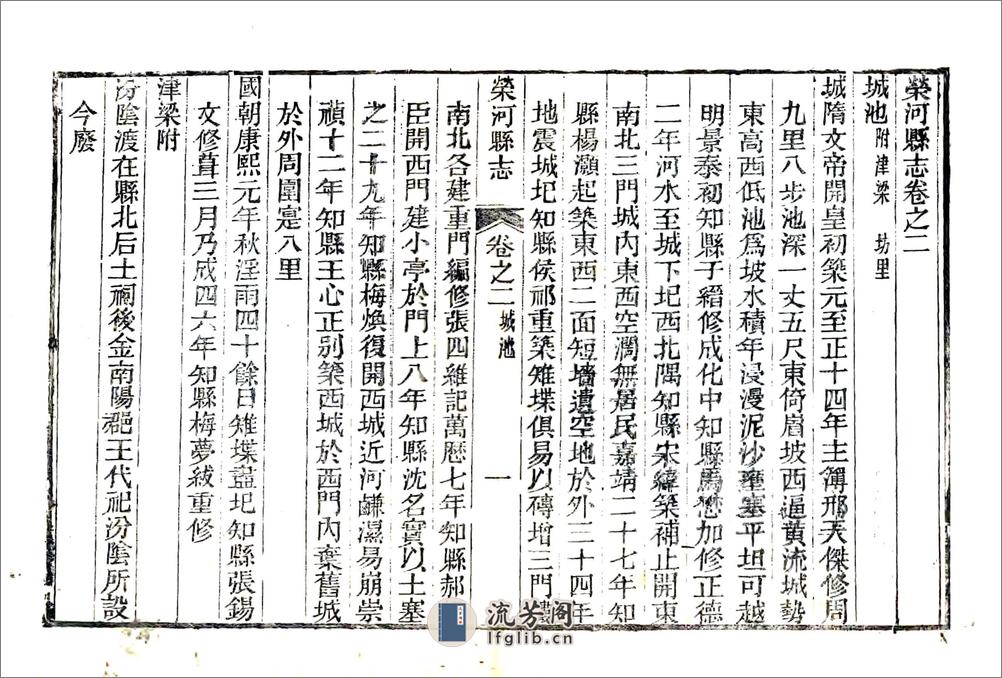 榮河縣志卷之二
城池附津梁 坊里
城隋文帝開皇初築元至正十四年主簿邢天傑修周
九里八步池深一丈五尺東倚眉坡西逼黃流城勢
東高西低池爲坡水積年浸漫泥沙壅塞平坦可越
明景泰初知縣子縉修成化中知縣馬懋加修正德
二年河水至城下圮西北隅知縣宋緯築補止開東
南北三門城內東西空濶無居民嘉靖二十七年知
縣楊灝起築東西二面短墻遺空地於外三十四年
地震城圮知縣侯祁重築雉堞俱易以磚增三門樓
榮河縣志 卷之二城池 一
南北各建重門編修張四維記萬歷七年知縣郝
臣開西門建小亭於門上八年知縣沈名實以土塞
之二十九年知縣梅煥復開西城近河鹻濕易崩崇
禎十二年知縣王心正别築西城於西門內棄舊城
於外周圍寔八里
國朝康熙元年秋淫雨四十餘日雉堞盡圮知縣張錫
文修葺三月乃成四六年知縣梅夢紱重修
津梁附
汾陰渡在縣北后土祠後金南陽郡王代祀汾陰所設
今廢
流芳阁
lfglib.cn